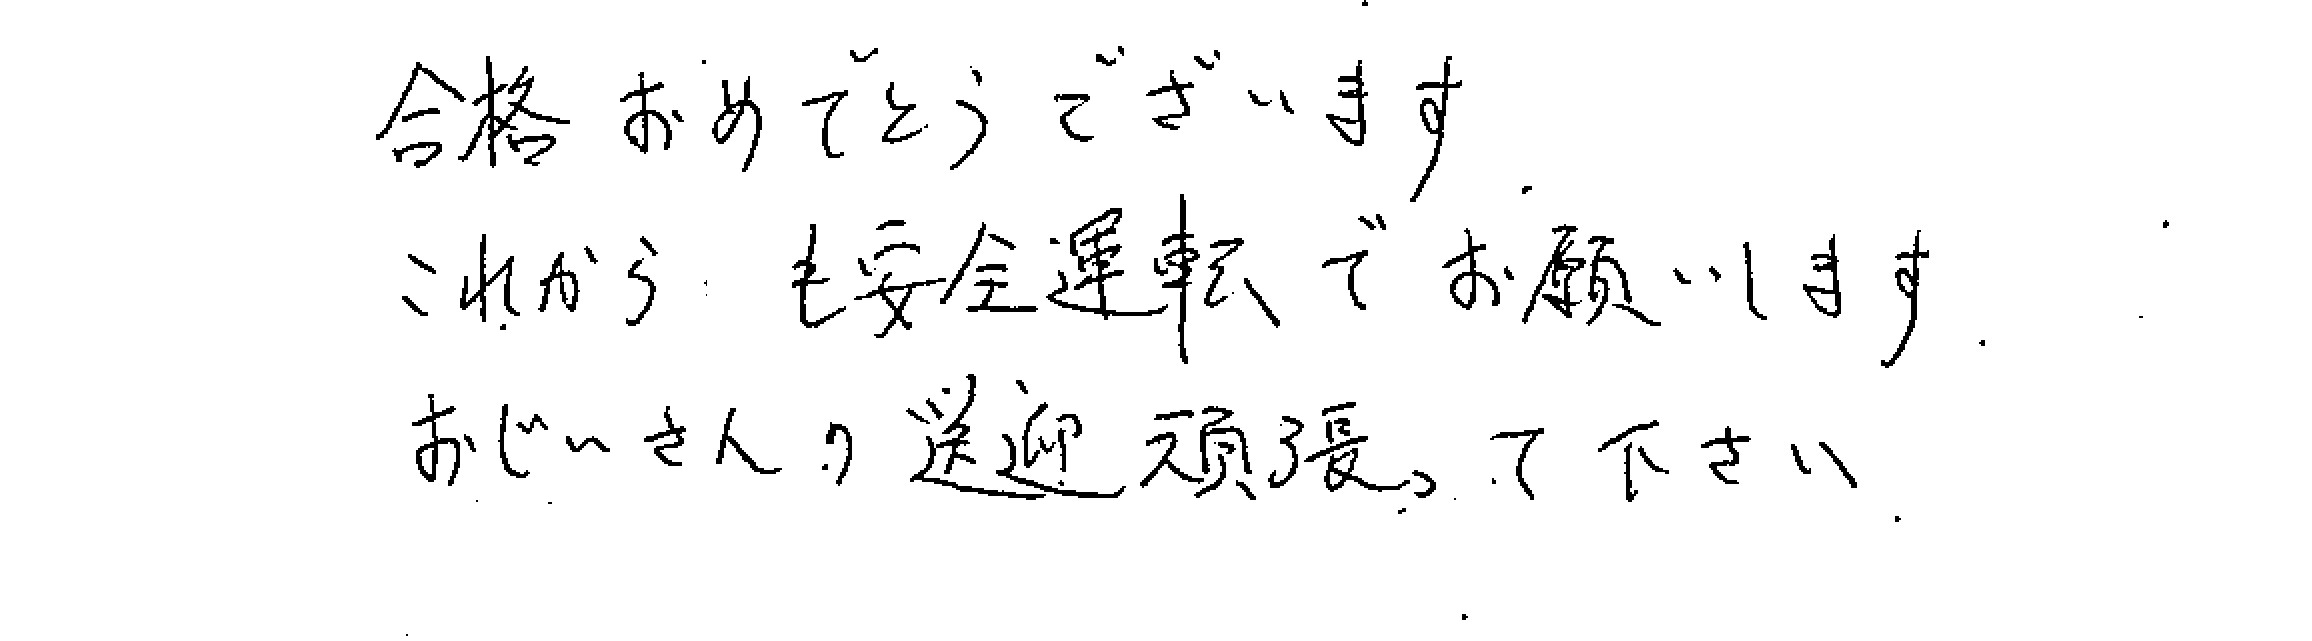 合格おめでとうございます
これからも安全運転でお願いします
おじいさんの送迎頑張って下さい